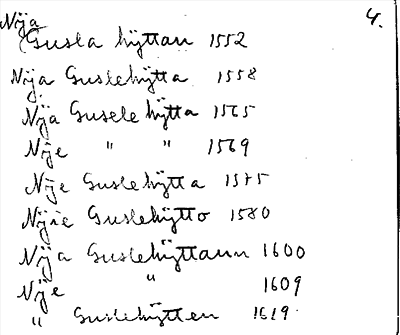 Nÿa 4.
Gusla hÿttan 1552
Nÿa Guslehÿtta 1558
Nÿa Gusele hÿtta 1565
Nÿe " " 1569
Nÿe Guslehÿtta 1575
Nÿie Guslehÿtto 1580
Nÿa Guslehÿttann 1600
Nÿe " 1609
" Guslehÿtten 1619